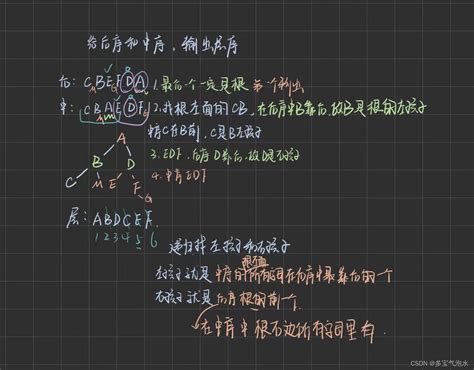 给后序和中序,输出层序
后:CBEFDA 1.最后一个一定是根 第一个输出
中:CBAEDF 2.找根左面的CB,在后序中B靠后,故B是根的左孩子
中序C在B前,C是B左孩子
A
B D
3.EDF,后序D靠后,故D是右孩子
C M E F
4.中序EDF
G
层:ABDCEF
1 2 3 4 5 6
递归找左孩子和右孩子
左孩子就是中序的所有词在后序中最靠后的一个
右孩子就是后序根的前一个
在中序中根右边所有词里有
CSDN @多宝气泡水